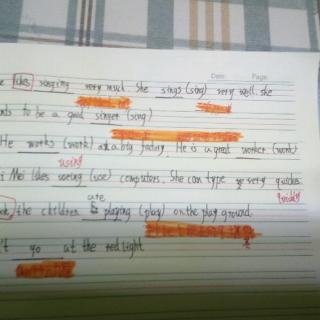 Date: Page:
e likes singing very much. She sings (sing) very well. she
nts to be a good singer (sing)
He works (work) at a big factory. He is a great worker (work)
using
i Mei likes useing (use) computers. She can type very quickes
quickly
are
the children playing (play) on the play ground.
't go at the red light